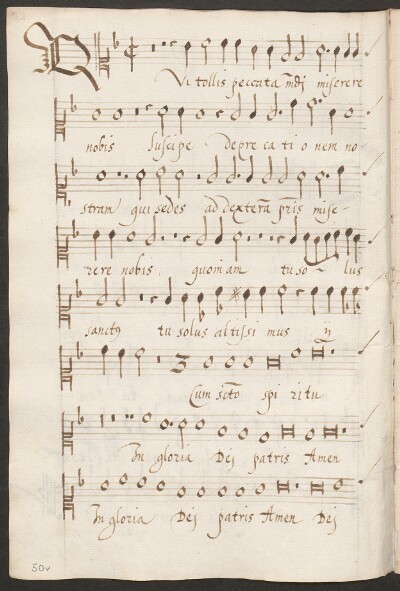 QVi tollis peccata mūdj miserere
nobis Suscipe depre ca ti o nem no
stram qui sedes ad dexterā pr̄is mise-
rere nobis. quoniam tu so lus
sanctꝰ tu solus altissi mus ij
3
Cum sctō spi ritu
In gloria Dej patris Amen
In gloria Dej patris Amen Dej
50v